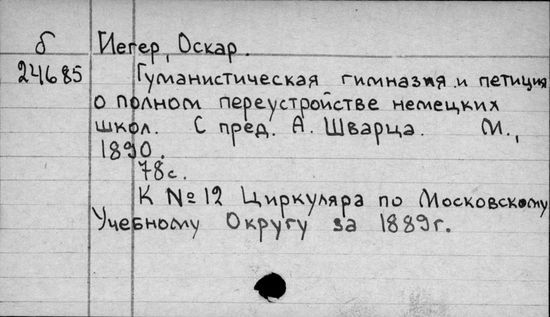 б Иегер, Оскар.
24685 Гуманистическая гимназия и петиция
о полном переустройстве немецких
школ. С пред. А. Шварца. М.,
1890.
78с.
К №12 Циркуляра по Московскому
Учебному Округу за 1889г.